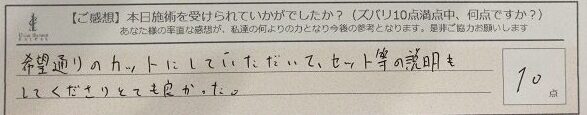 【ご感想】本日施術を受けられていかがでしたか？（ズバリ10点満点中、何点ですか？）
あなた様の率直な感想が、私達の何よりの力となり今後の参考となります。是非ご協力お願いします
希望通りのカットにしていただいて、セット等の説明も
してくださりとても良かった。
10
点